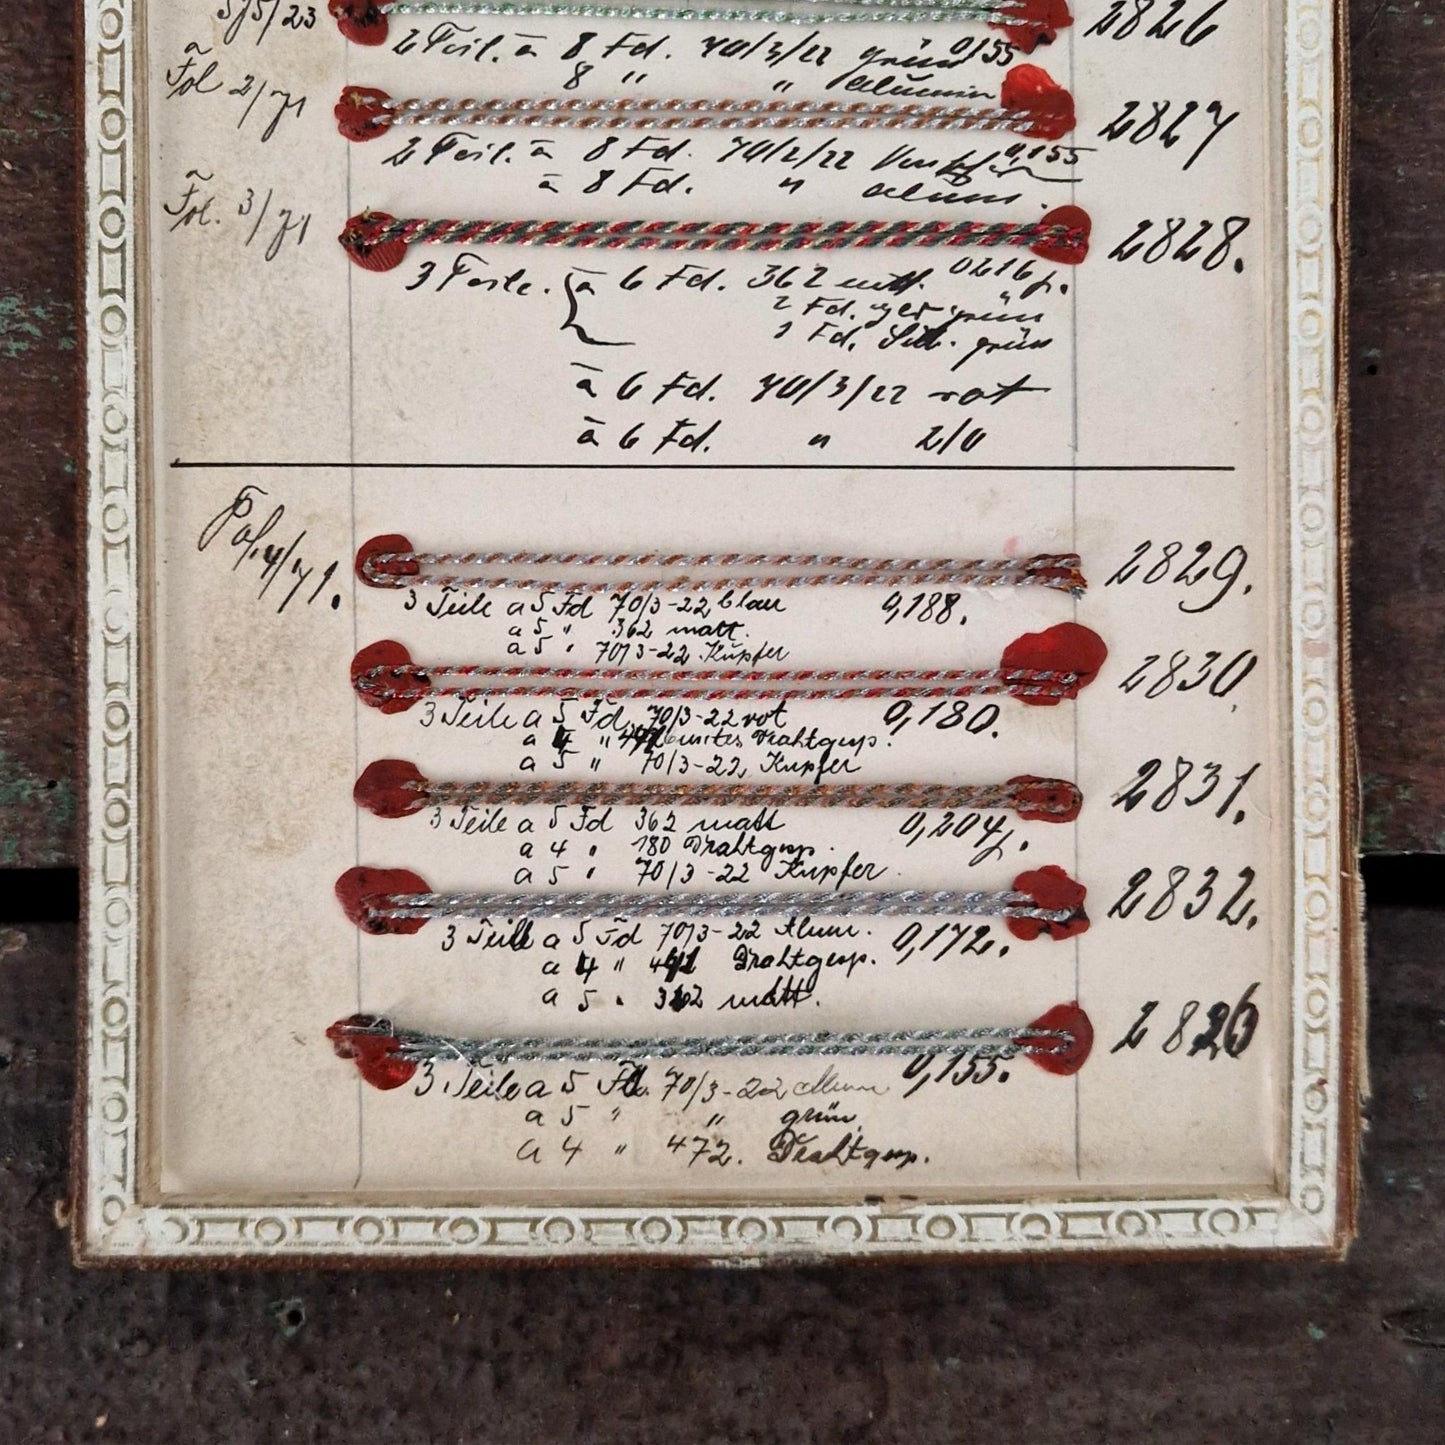 5/5/23 2826
2 Teil. à 8 Fd. 70/3/22 grün 0,155
8 " " Alumin
Fol 2/71 2827
2 Teil. à 8 Fd. 70/2/22 0,155
à 8 Fd. " Alum.
Fol. 3/71 2828.
3 Teile. à 6 Fd. 362 matt. 0216 p.
2 Fd. grün
1 Fd. grün
à 6 Fd. 70/3/22 rot
à 6 Fd. " 2/0
Fol. 4/71. 2829.
3 Teile a 5 Fd 70/3-22 blau 0,188.
a 5 " 362 matt.
a 5 " 70/3-22 Kupfer
2830
3 Teile a 5 Fd. 70/3-22 rot 0,180.
a 4 " buntes Drahtgesp.
a 5 " 70/3-22, Kupfer
2831.
3 Teile a 5 Fd 362 matt 0,204
a 4 " 180 Drahtgesp.
a 5 " 70/3-22 Kupfer.
2832.
3 Teile a 5 Fd 70/3-22 Alum. 0,172.
a 4 " Drahtgesp.
a 5 " 362 matt.
2826
3 Teile a 5 Fd. 70/3-22 Alum 0,155.
a 5 " " grün,
a 4 " 472. Drahtgesp.